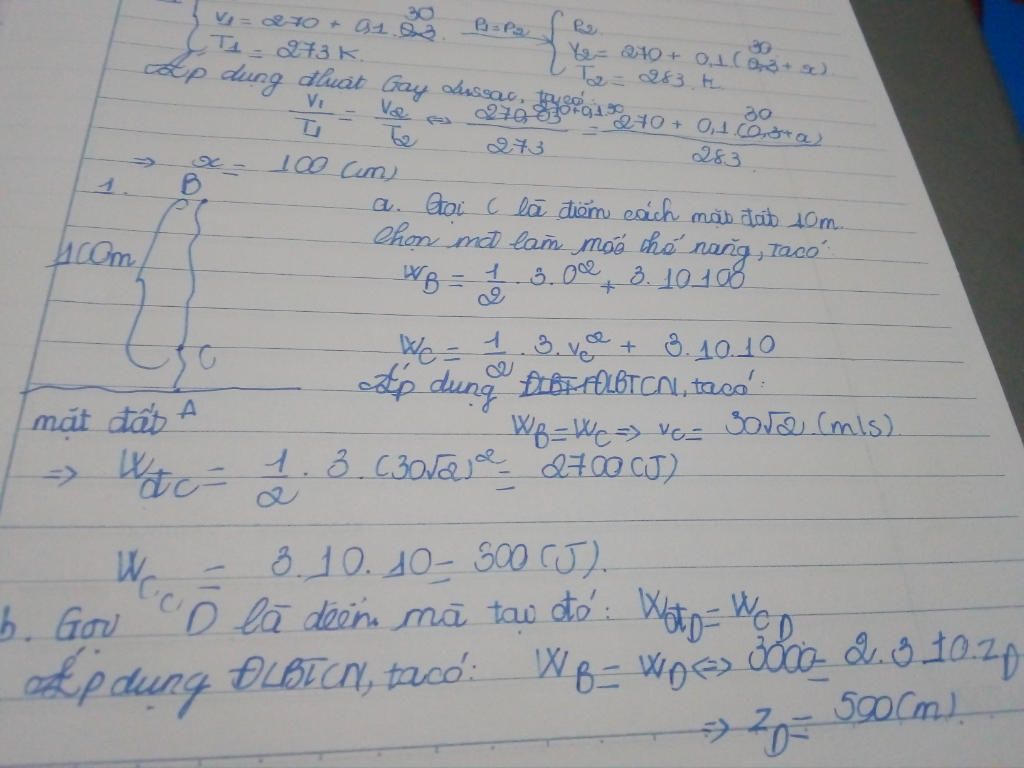 V₁ = 270 + 0,1.30 P₁=P₂ P₂
T₁ = 273 K. V₂ = 270 + 0,1(30 + x)
T₂ = 283 K
Áp dụng thuật Gay Lussac, ta có:
V₁/T₁ = V₂/T₂ ⇔ 270+0,1.30/273 = 270 + 0,1.(30+x)/283
⇒ x = 100 (cm)
1. B
100m
C
mặt đất A
a. Gọi C là điểm cách mặt đất 10m.
Chọn mđ làm mốc thế năng, ta có:
W_B = 1/2 . 3.0² + 3.10.100
W_C = 1/2 . 3.v_C² + 3.10.10
Áp dụng ĐLBTCN, ta có:
W_B = W_C ⇒ v_C = 30√2 (m/s)
⇒ W_đC = 1/2 . 3 . (30√2)² = 2700 (J)
W_C,C = 3.10.10 = 300 (J).
b. Gọi D là điểm mà tại đó: W_đD = W_CD
Áp dụng ĐLBTCN, ta có: W_B = W_D ⇔ 3000 = 2.3.10.z_D
⇒ z_D = 500 (m)